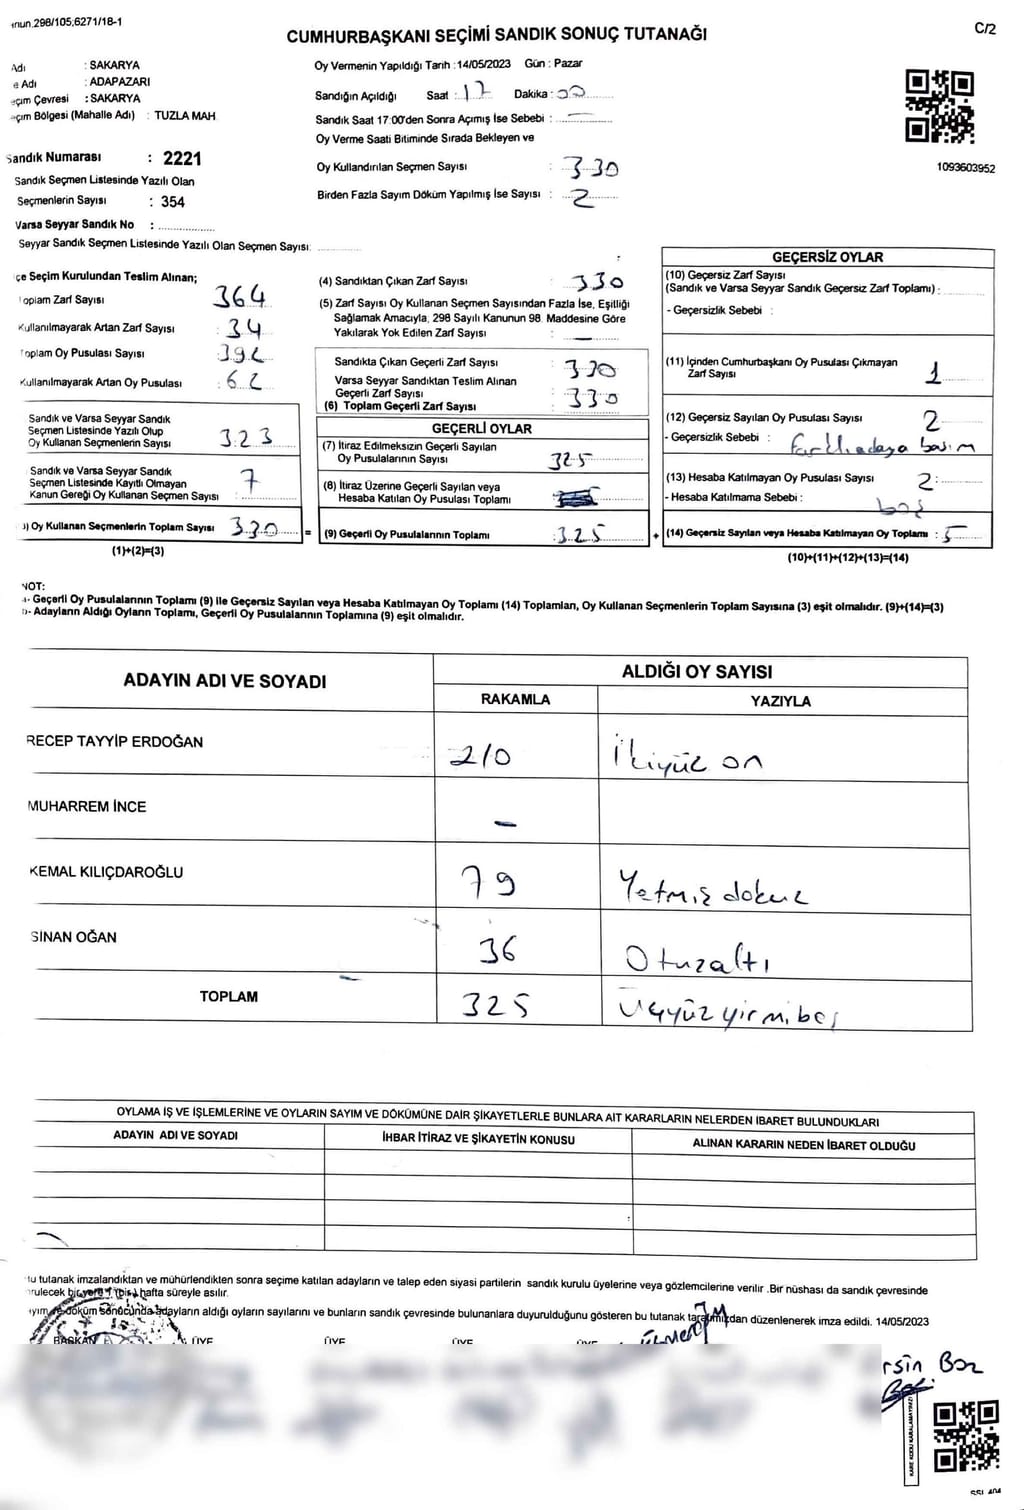 nun.298/105;6271/18-1
C/2
CUMHURBAŞKANI SEÇİMİ SANDIK SONUÇ TUTANAĞI
Adı : SAKARYA
e Adı : ADAPAZARI
eçim Çevresi : SAKARYA
eçim Bölgesi (Mahalle Adı) : TUZLA MAH.
Sandık Numarası : 2221
Sandık Seçmen Listesinde Yazılı Olan
Seçmenlerin Sayısı : 354
Varsa Seyyar Sandık No :
Seyyar Sandık Seçmen Listesinde Yazılı Olan Seçmen Sayısı:
Oy Vermenin Yapıldığı Tarih : 14/05/2023 Gün : Pazar
Sandığın Açıldığı Saat : 17 Dakika : 00
Sandık Saat 17:00'den Sonra Açımış İse Sebebi : —
Oy Verme Saati Bitiminde Sırada Bekleyen ve
Oy Kullandırılan Seçmen Sayısı : 330
Birden Fazla Sayım Döküm Yapılmış İse Sayısı : 2
1093603952
çe Seçim Kurulundan Teslim Alınan;
Toplam Zarf Sayısı 364
Kullanılmayarak Artan Zarf Sayısı : 34
Toplam Oy Pusulası Sayısı : 392
Kullanılmayarak Artan Oy Pusulası : 62
Sandık ve Varsa Seyyar Sandık
Seçmen Listesinde Yazılı Olup
Oy Kullanan Seçmenlerin Sayısı 323
Sandık ve Varsa Seyyar Sandık
Seçmen Listesinde Kayıtlı Olmayan
Kanun Gereği Oy Kullanan Seçmen Sayısı : 7
) Oy Kullanan Seçmenlerin Toplam Sayısı 330 =
(1)+(2)=(3)
(4) Sandıktan Çıkan Zarf Sayısı : 330
(5) Zarf Sayısı Oy Kullanan Seçmen Sayısından Fazla İse, Eşitliği
Sağlamak Amacıyla, 298 Sayılı Kanunun 98. Maddesine Göre
Yakılarak Yok Edilen Zarf Sayısı : —
Sandıkta Çıkan Geçerli Zarf Sayısı : 330
Varsa Seyyar Sandıktan Teslim Alınan
Geçerli Zarf Sayısı
(6) Toplam Geçerli Zarf Sayısı : 330
GEÇERLİ OYLAR
(7) İtiraz Edilmeksizin Geçerli Sayılan
Oy Pusulalarının Sayısı 325
(8) İtiraz Üzerine Geçerli Sayılan veya
Hesaba Katılan Oy Pusulası Toplamı
(9) Geçerli Oy Pusulalarının Toplamı : 325 +
GEÇERSİZ OYLAR
(10) Geçersiz Zarf Sayısı
(Sandık ve Varsa Seyyar Sandık Geçersiz Zarf Toplamı) :
- Geçersizlik Sebebi :
(11) İçinden Cumhurbaşkanı Oy Pusulası Çıkmayan
Zarf Sayısı 1
(12) Geçersiz Sayılan Oy Pusulası Sayısı 2
- Geçersizlik Sebebi :
(13) Hesaba Katılmayan Oy Pusulası Sayısı 2
- Hesaba Katılmama Sebebi : boş
(14) Geçersiz Sayılan veya Hesaba Katılmayan Oy Toplamı : 5
(10)+(11)+(12)+(13)=(14)
NOT:
- Geçerli Oy Pusulalarının Toplamı (9) ile Geçersiz Sayılan veya Hesaba Katılmayan Oy Toplamı (14) Toplamları, Oy Kullanan Seçmenlerin Toplam Sayısına (3) eşit olmalıdır. (9)+(14)=(3)
- Adayların Aldığı Oyların Toplamı, Geçerli Oy Pusulalarının Toplamına (9) eşit olmalıdır.
ADAYIN ADI VE SOYADI ALDIĞI OY SAYISI
RAKAMLA YAZIYLA
RECEP TAYYİP ERDOĞAN 210 İkiyüz on
MUHARREM İNCE —
KEMAL KILIÇDAROĞLU 79 Yetmiş dokuz
SİNAN OĞAN 36 Otuzaltı
TOPLAM 325 Üçyüz yirmi beş
OYLAMA İŞ VE İŞLEMLERİNE VE OYLARIN SAYIM VE DÖKÜMÜNE DAİR ŞİKAYETLERLE BUNLARA AİT KARARLARIN NELERDEN İBARET BULUNDUKLARI
ADAYIN ADI VE SOYADI İHBAR İTİRAZ VE ŞİKAYETİN KONUSU ALINAN KARARIN NEDEN İBARET OLDUĞU
u tutanak imzalandıktan ve mühürlendikten sonra seçime katılan adayların ve talep eden siyasi partilerin sandık kurulu üyelerine veya gözlemcilerine verilir .Bir nüshası da sandık çevresinde
rülecek bir yere 1 (bir) hafta süreyle asılır.
ayım ve döküm sonucunda adayların aldığı oyların sayılarını ve bunların sandık çevresinde bulunanlara duyurulduğunu gösteren bu tutanak tarafımızdan düzenlenerek imza edildi. 14/05/2023
BAŞKAN ÜYE ÜYE ÜYE ÜYE
KARE KODU KARALAMAYINIZ!